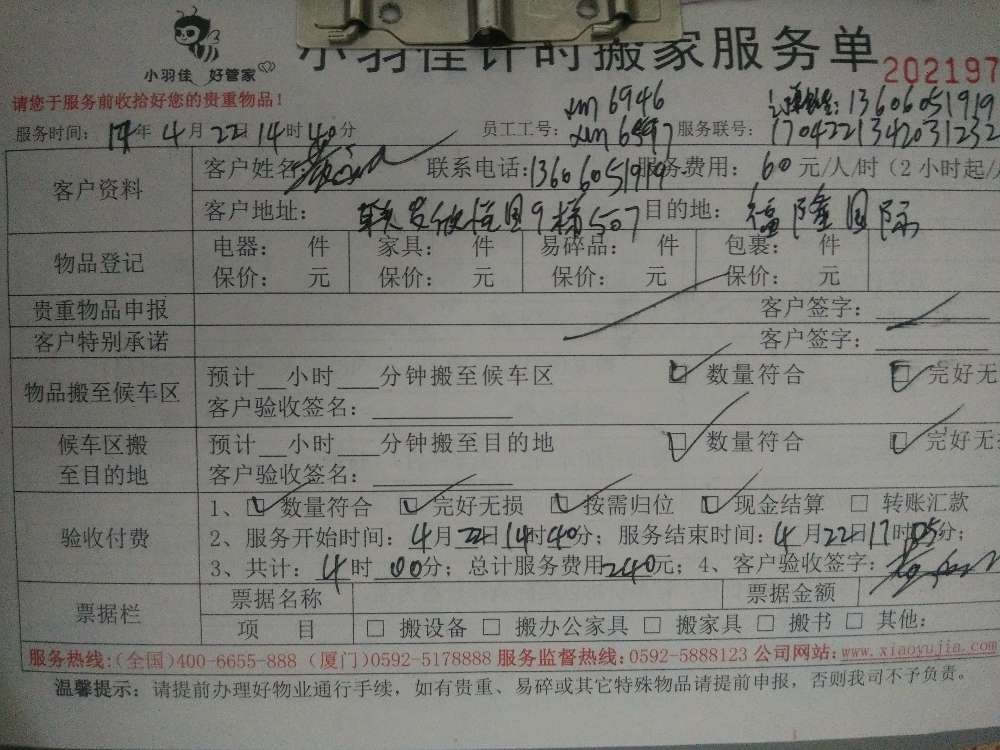 小羽佳 好管家
小羽佳计时搬家服务单
202197
请您于服务前收拾好您的贵重物品！
xm6946
13606051919
服务时间：17年4月22日14时40分 员工工号：xm6597 服务联号：1704221342031232
客户资料
客户姓名： 联系电话：13606051919 服务费用：60元/人/时（2小时起/
客户地址：联发欣悦园9梯507 目的地：福隆国际
物品登记
电器： 件 家具： 件 易碎品： 件 包裹： 件
保价： 元 保价： 元 保价： 元 保价： 元
贵重物品申报 客户签字：
客户特别承诺 客户签字：
物品搬至候车区
预计__小时___分钟搬至候车区 ☑ 数量符合 ☑ 完好无
客户验收签名：
候车区搬至目的地
预计__小时___分钟搬至目的地 ☑ 数量符合 ☑ 完好无
客户验收签名：
验收付费
1、☑ 数量符合 ☑ 完好无损 ☑ 按需归位 ☑ 现金结算 □ 转账汇款
2、服务开始时间：4月22日14时40分；服务结束时间：4月22日17时05分；
3、共计：4时00分；总计服务费用240元；4、客户验收签字：
票据栏
票据名称 票据金额
项 目 □ 搬设备 □ 搬办公家具 □ 搬家具 □ 搬书 □ 其他：
服务热线：（全国）400-6655-888（厦门）0592-5178888 服务监督热线：0592-5888123 公司网站：www.xiaoyujia.com
温馨提示：请提前办理好物业通行手续，如有贵重、易碎或其它特殊物品请提前申报，否则我司不予负责。